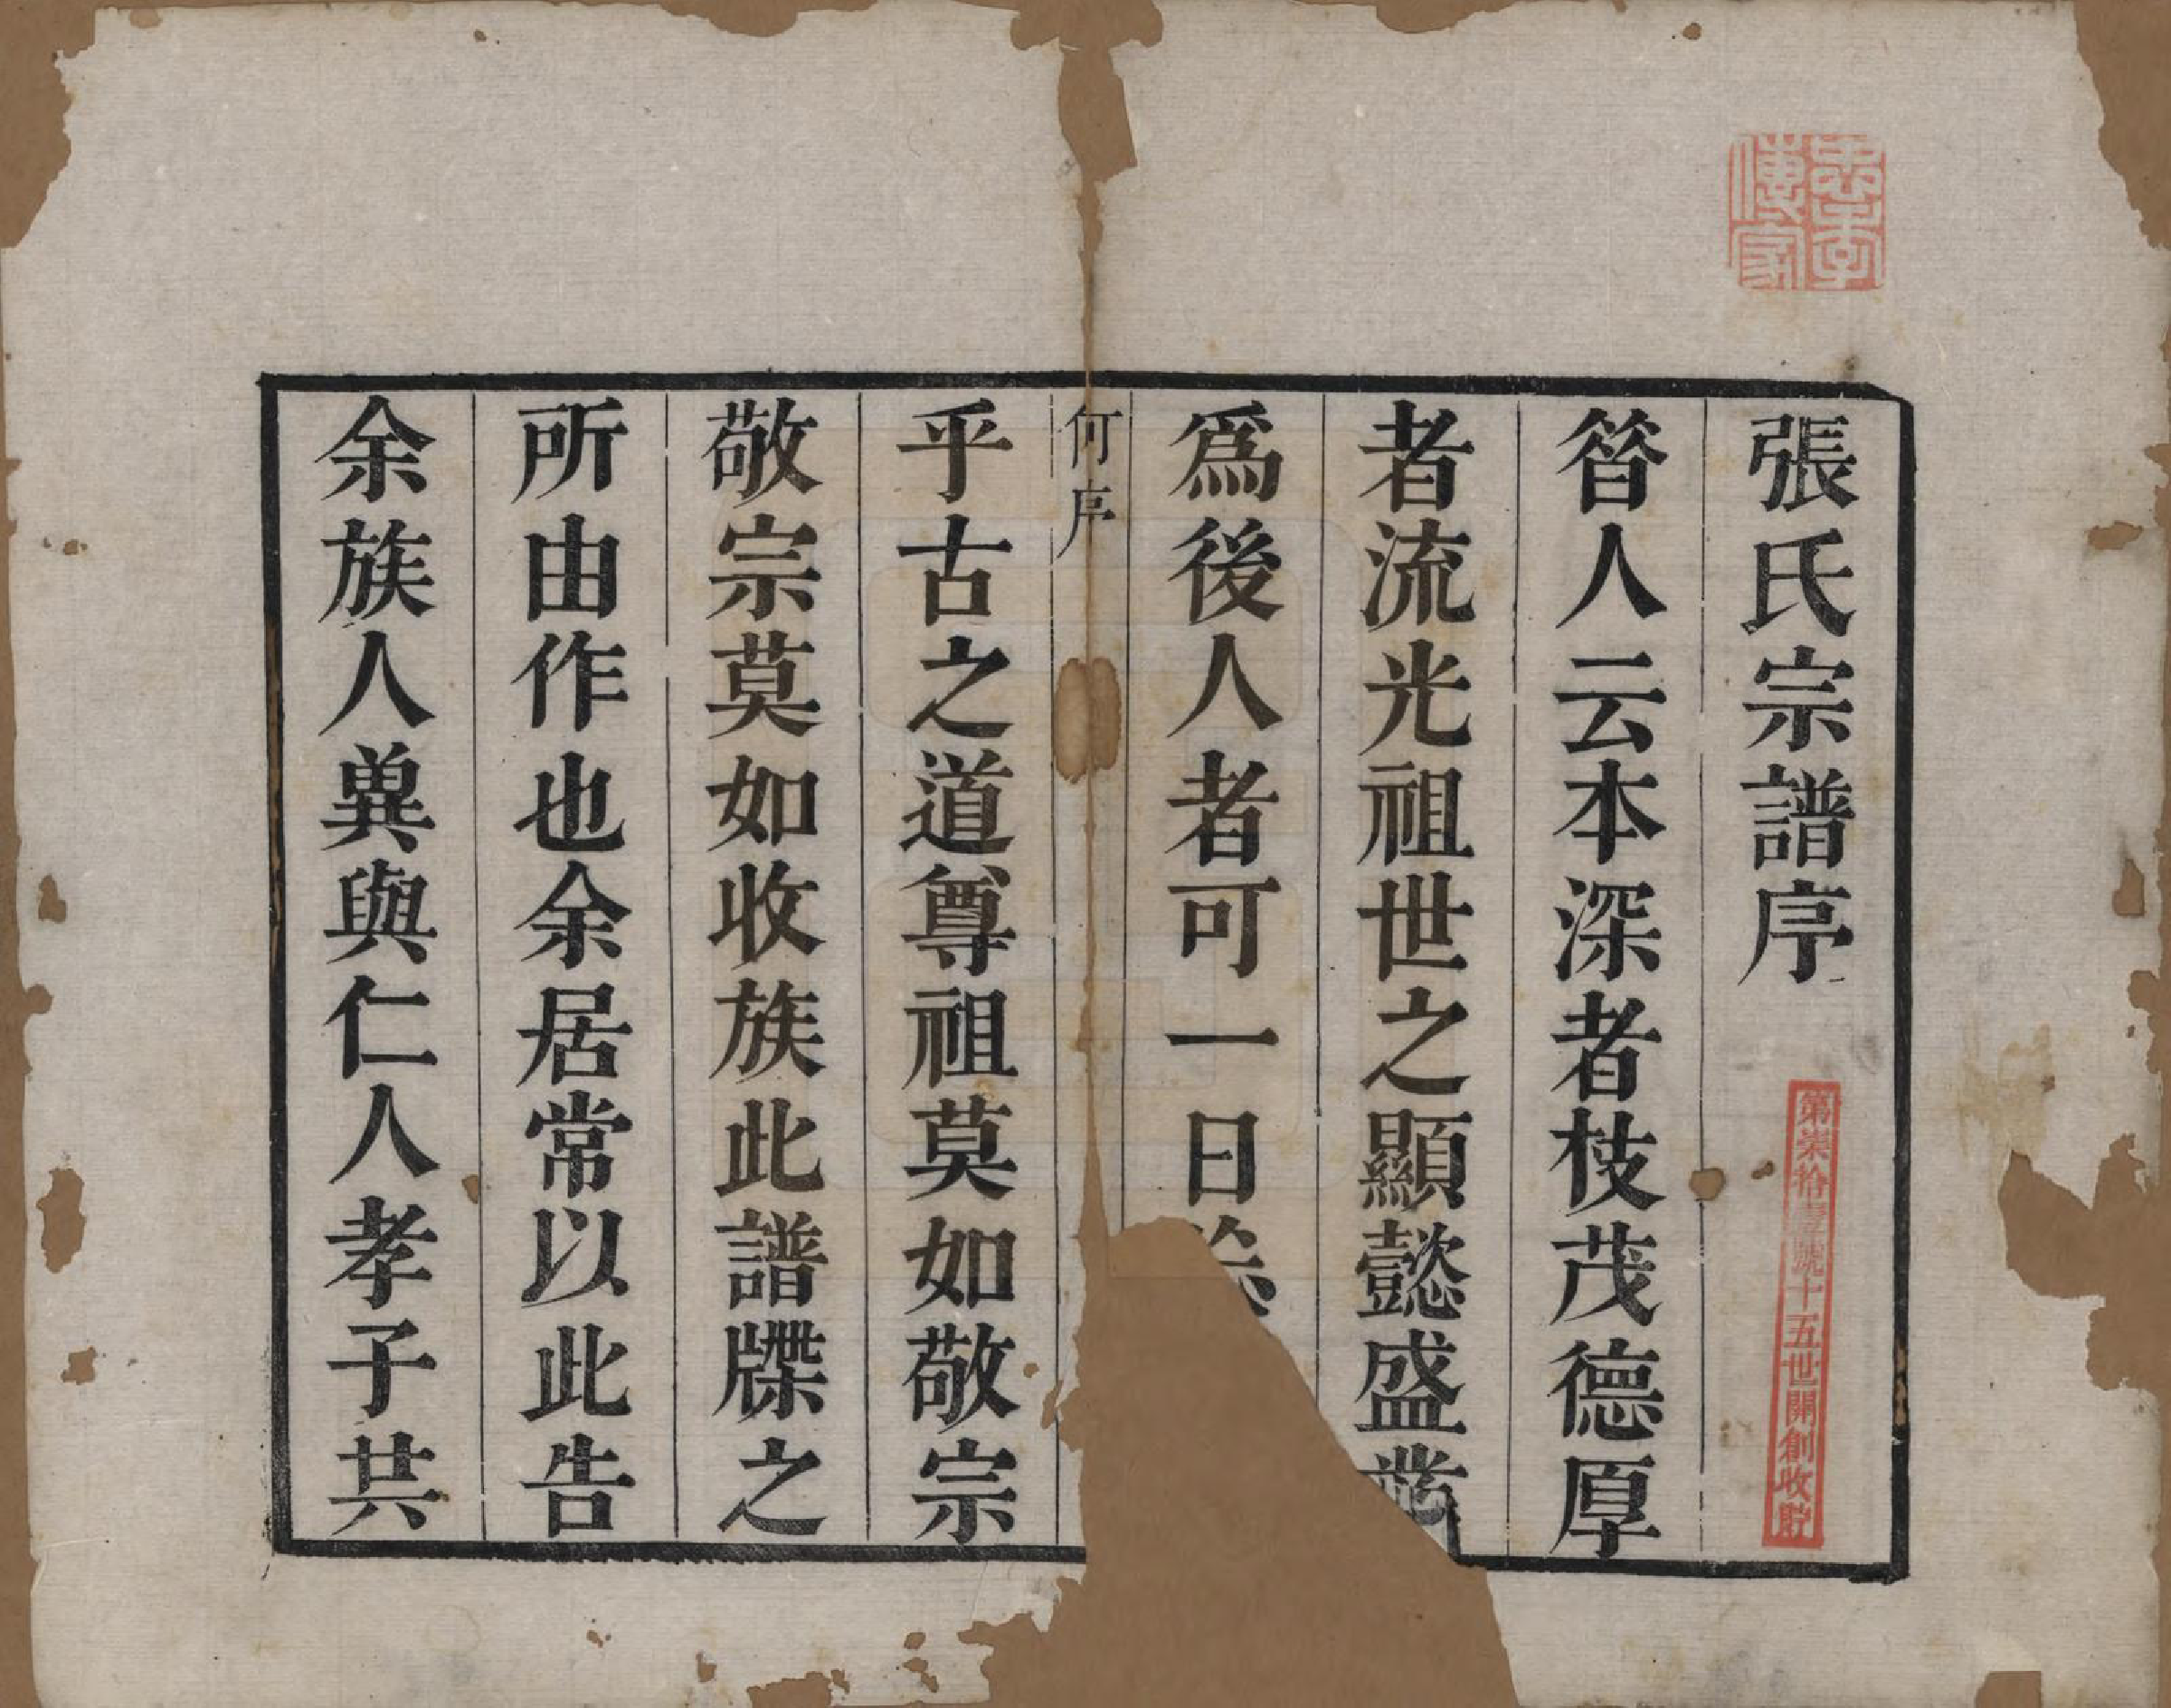 張氏宗譜序
昝人云本深者枝茂德厚
者流光祖世之顯懿盛業
爲後人者可一日
何序
乎古之道尊祖莫如敬宗
敬宗莫如收族此譜牒之
所由作也余居常以此告
余族人兾與仁人孝子共
忠孝
傳家
第柒拾壹號十五世開創收貯